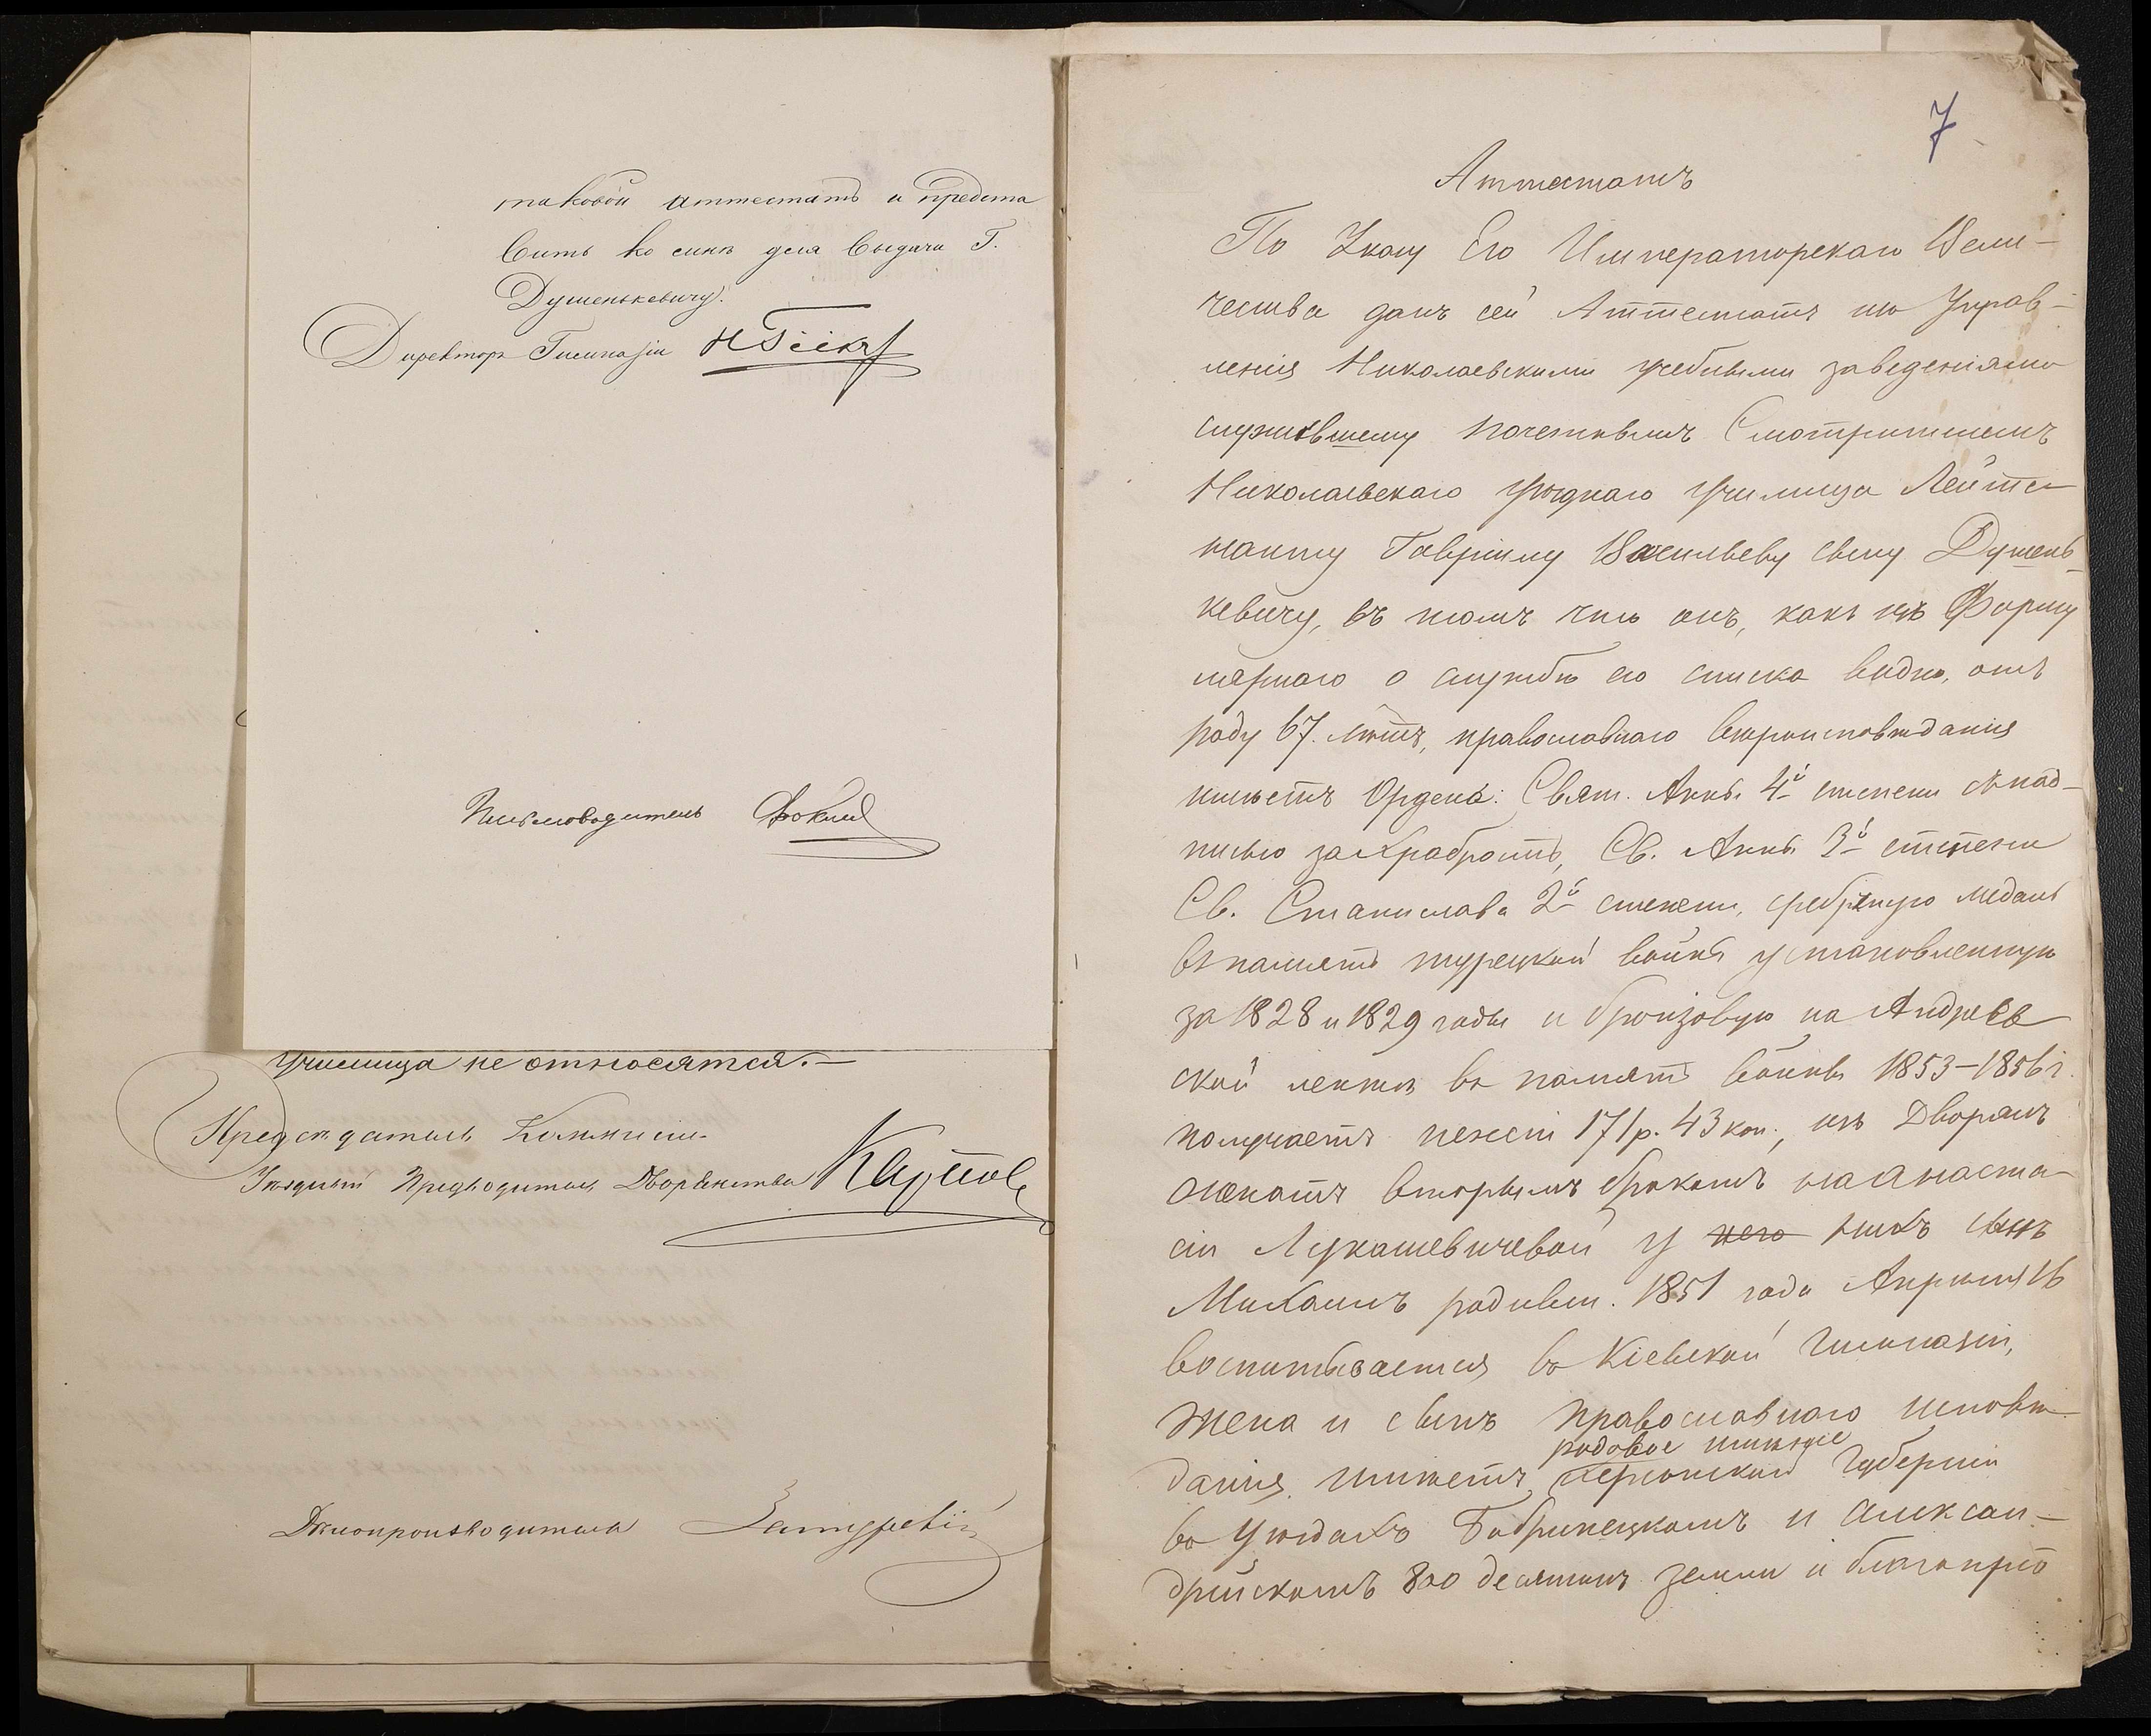 таковой аттестатъ и предста
вить ко мнѣ для выдачи Г.
Душенькевичу.
Директоръ Гимназіи
Письмоводитель Фокинъ
училища не относятся.—
Предсѣдатель Коммисіи
Уѣздный Предводитель Дворянства Карповъ
Дѣлопроизводитель
7
Аттестатъ
По Указу Его Императорскаго Вели-
чества данъ сей Аттестатъ по Управ-
ленія Николаевскими учебными заведеніями
служившему Почетнымъ Смотрителемъ
Николаевскаго уѣзднаго училища Лейте-
нанту Гавріилу Васильеву сыну Душень-
кевичу, въ томъ что онъ, какъ изъ Форму
лярнаго о службѣ его списка видно, отъ
роду 67. лѣтъ, православнаго вѣроисповѣданія
имѣетъ Ордена: Свят. Анны 4й степени съ над-
писью за храбрость, Св. Анны 3й степени
Св. Станислава 2й степени, сребряную медаль
въ память турецкой войны установленную
за 1828 и 1829 годы и бронзовую на Андреев
ской лентѣ въ память войны 1853-1856 г.
получаетъ пенсіи 171 р. 43 коп., изъ Дворянъ
женатъ вторымъ бракомъ на Анаста-
сіи Лукашевичевой у него нихъ сынъ
Михаилъ родивш. 1851 года Апрѣля 16
воспитывается въ Кіевской Гимназіи,
жена и сынъ православнаго исповѣ-
родовое имѣніе
данія, имѣетъ Херсонской Губерніи
въ Уѣздахъ Бобринецкомъ и Алексан-
дрійскомъ 800 десятинъ земли и благопріо